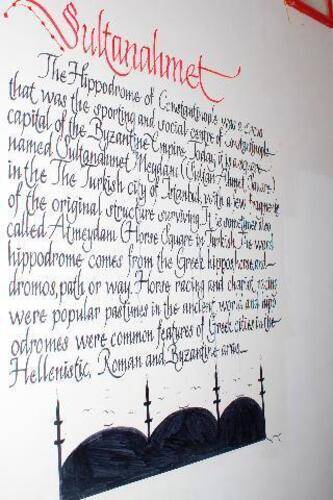 Sultanahmet
The Hippodrome of Constantinople was a circus
that was the sporting and social centre of Constantinople,
capital of the Byzantine Empire. Today it is a square
named Sultanahmet Meydani (Sultan Ahmet Square)
in the The Turkish city of Istanbul, with a few fragments
of the original structure surviving. It is sometimes also
called Atmeydani (Horse Square) in Turkish. The word
hippodrome comes from the Greek hippos, horse, and
dromos, path or way. Horse racing and chariot racing
were popular pastimes in the ancient world and hipp
odromes were common features of Greek cities in the
Hellenistic, Roman and Byzantine eras.